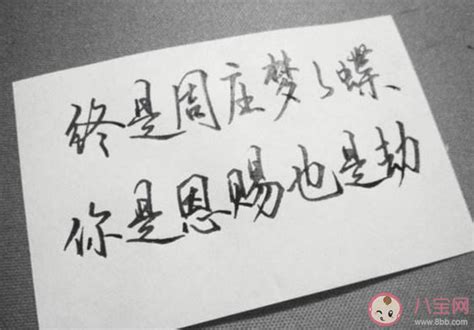 终是周庄梦了蝶
你是恩赐也是劫
八宝网
www.8bb.com